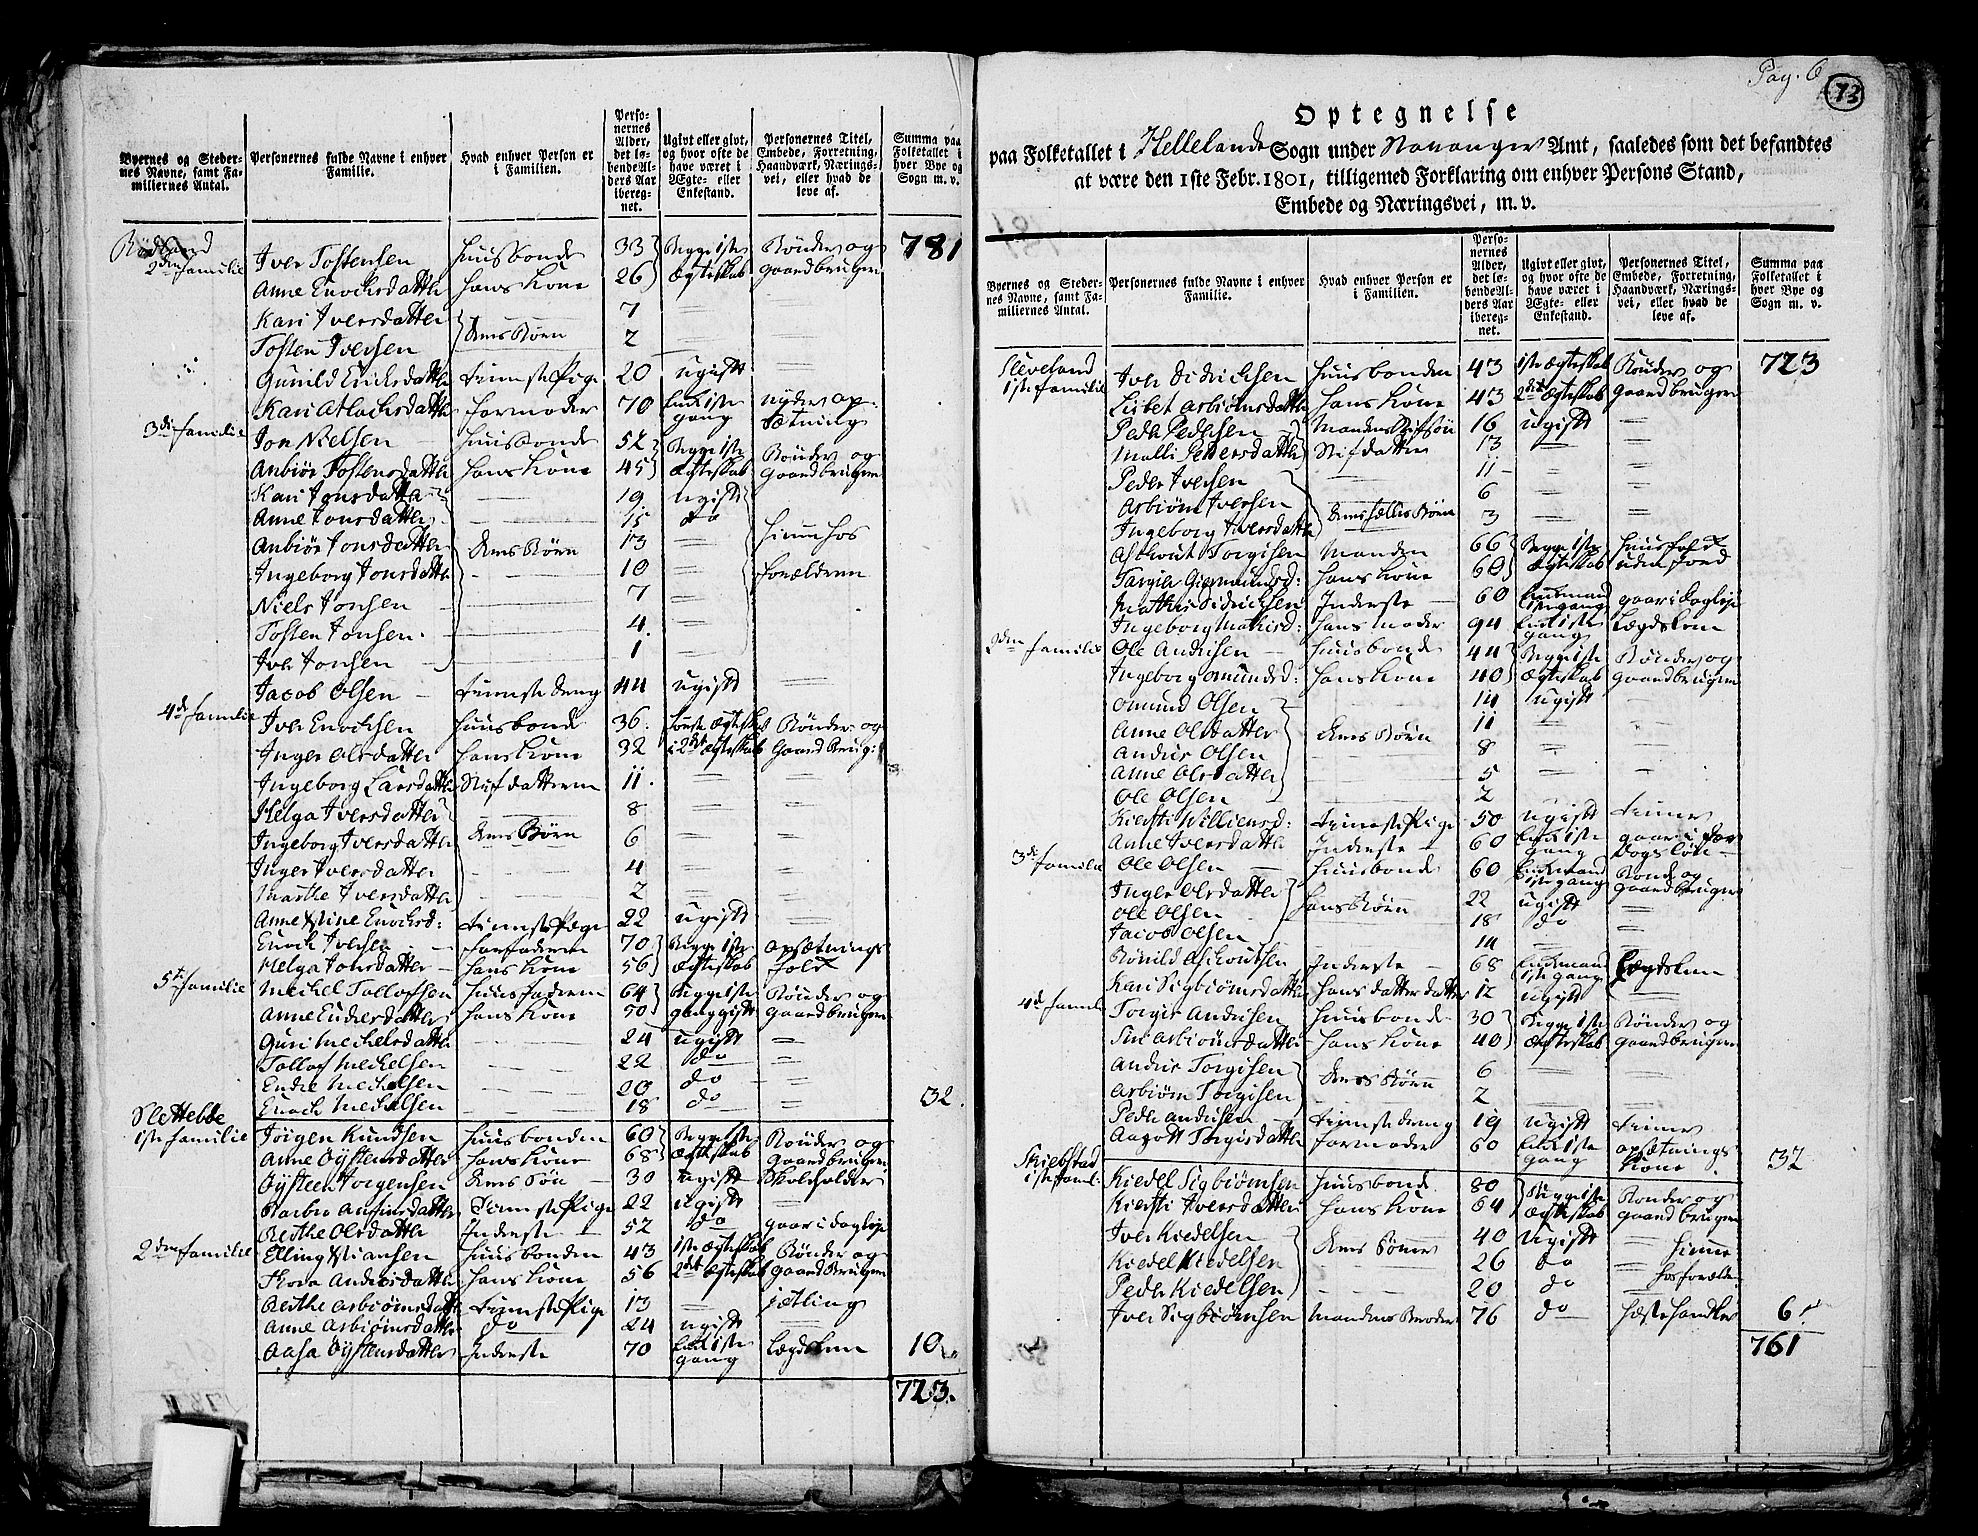 Byernes og Stedernes Navne, samt Familiernes Antal.
Personernes fulde Navne i enhver Familie.
Hvad enhver Person er i Familien.
Personernes Alder, det løbende Alders Aar iberegnet.
Ugivt eller givt, og hvor ofte de have været i Ægte- eller Enkestand.
Personernes Titel, Embede, Forretning, Haandværk, Næringsvei, eller hvad de leve af.
Summa paa Folketallet i hver Bye og Sogn m. v.
2den familie Iver Tostensen Huusbonde 33 Begge 1ste Bønder og 781
Anne Enochsdatter hans Kone 26 Ægteskab gaardbruger
Kari Iversdatter 7
Tosten Iversen deres Børn 2
Gunild Erichsdatter tienestePige 20 ugivt
Kari Atlachsdatter farmoder 70 Enke 1ste gang
3die familie Jon Nielsen Huusbonde 52 Begge 1ste Bønder og
Anbiør Tostensdatter hans Kone 45 Ægteskab gaardbruger
Kari Jonsdatter 19 ugivt
Anne Jonsdatter 15 do
Anbiør Jonsdatter deres Børn 13 hiemme hos
Ingeborg Jonsdatter 10 forældrene
Niels Jonsen 7
Tosten Jonsen 4
Iver Jonsen 1
Jacob Olsen tieneste dreng 44 ugivt
4de familie Iver Enochsen Huusbonde 36 første Ægteskab Bønder og
Inger Olsdatter hans Kone 32 i 2det Ægteskab Gaard Brug:
Ingeborg Larsdatter Stifdatteren 11
Helga Iversdatter 8
Ingeborg Iversdatter deres Børn 6
Inger Iversdatter 4
Marthe Iversdatter 2
Anne Stine Enochsd: tienestePige 22 ugivt
Enoch Iversen farfaderen 70 Begge 1ste opsætnings
Helga Jonsdatter hans Kone 56 Ægteskab folk
5te familie Mechel Tollofsen Huusfaderen 64 Begge 1ste Bønder og
Anne Endresdatter hans Kone 50 gang givt gaardbruger
Guri Mechelsdatter 24 ugivt
Tollof Mechelsen 22 do
Endre Mechelsen 20 do
Enoch Mechelsen 18 do 32.
Slettebøe
1ste familie Jörgen Knudsen Huusbonden 60 Begge 1ste Bønder og
Anne Oÿstensdatter hans Kone 68 Ægteskab gaardbruger
Oÿsteen Jorgensen deres Søn 30 ugivt Skoleholder
Barbro Anfindsdatter TienestePige 22 ugivt
Berthe Olsdatter Inderste 52 do gaar i dagleje
2den familie Elling Stiansen Huusbonden 43 1ste Ægteskab Bønder og
Thora Andersdatter hans Kone 56 2det Ægteskab gaard Bruger
Berthe Asbiørnsdatter tienestePige 13
Anne Asbiørnsdatter do 24 ugivt
Aasa Oÿstensdatter Inderste 70 Enke 1ste gang Lægdslem 10
723.
Pag. 6
73
Optegnelse
paa Folketallet i Hellelands Sogn under Stavanger Amt, saaledes som det befandtes
at være den 1ste Febr. 1801, tilligemed Forklaring om enhver Persons Stand,
Embede og Næringsvei, m. v.
Byernes og Stedernes Navne, samt Familiernes Antal.
Personernes fulde Navne i enhver Familie.
Hvad enhver Person er i Familien.
Personernes Alder, det løbende Alders Aar iberegnet.
Ugivt eller givt, og hvor ofte de have været i Ægte- eller Enkestand.
Personernes Titel, Embede, Forretning, Haandværk, Næringsvei, eller hvad de leve af.
Summa paa Folketallet i hver Bye og Sogn m. v.
Sleveland
1ste familie Iver Didrichsen Huusbonden 43 1ste Ægteskab Bønder og 723
Lisbet Asbiørnsdatter hans Kone 43 2det Ægteskab gaardbruger
Peder Pedersen Mandens Stifsøn 16 ugivt
Malli Pedersdatter Stifdatter 13
Peder Iversen 11
Asbiørn Iversen 6
Ingeborg Iversdatter deres fælles Børn 3
Torgier Giermundsd: hans Kone 60 Ægteskab uden jord
Mathis Didrichsen Inderste 60 Enkemand 1ste gang gaar i dagleje
Ingeborg Mathisd: hans moder 94 Enke 1ste gang Lægdslem
2den familie Ole Andersen Huusbonde 44 Begge 1ste Bønder og
Ingeborg Omundsd: hans Kone 40 Ægteskab gaardbruger
Omund Olsen 14 ugivt
Anne Olsdatter deres Børn 11
Anders Olsen 8
Anne Olsdatter 5
Ole Olsen 2
Kiersti Villiemsd: tienestePige 50 ugivt tiener
Anne Iversdatter Inderste 60 Enke 1ste gang
3die familie Ole Olsen Huusbonde 60 Enkemand 1ste gang Bonde og gaardbruger
Inger Olsdatter 22 ugivt
Ole Olsen hans Børn 18 do
Jacob Olsen 14
Inderste 68 Enkemand 1ste gang Lægdslem
Kari Sigbiørnsdatter hans datter datter 12 ugivt
4de famil: Torgier Andersen Huusbonde 30 Begge 1ste Bønder og
Siri Asbiørnsdatter hans Kone 40 Ægteskab gaardbruger
Anders Torgisen 6
Asbiørn Torgisen deres Børn 2
Peder Andersen tieneste dreng 19 ugivt tiener
Torgisdatter farmoder 60 Enke 1ste gang opsætnings Kone 32
Skiebstad
1ste famil: Kiedel Sigbiørnsen Huusbonde 80 Begge 1ste Bonder og
Kiersti Iversdatter hans Kone 64 Ægteskab gaardbruger
Iver Kiedelsen 40 ugivt
Kiedel Kiedelsen deres Sønner 26 do hiemme
Peder Kiedelsen 20 do hos forældre
Iver Sigbiørnsen Mandens Broder 76 do Hestehandler 6
761